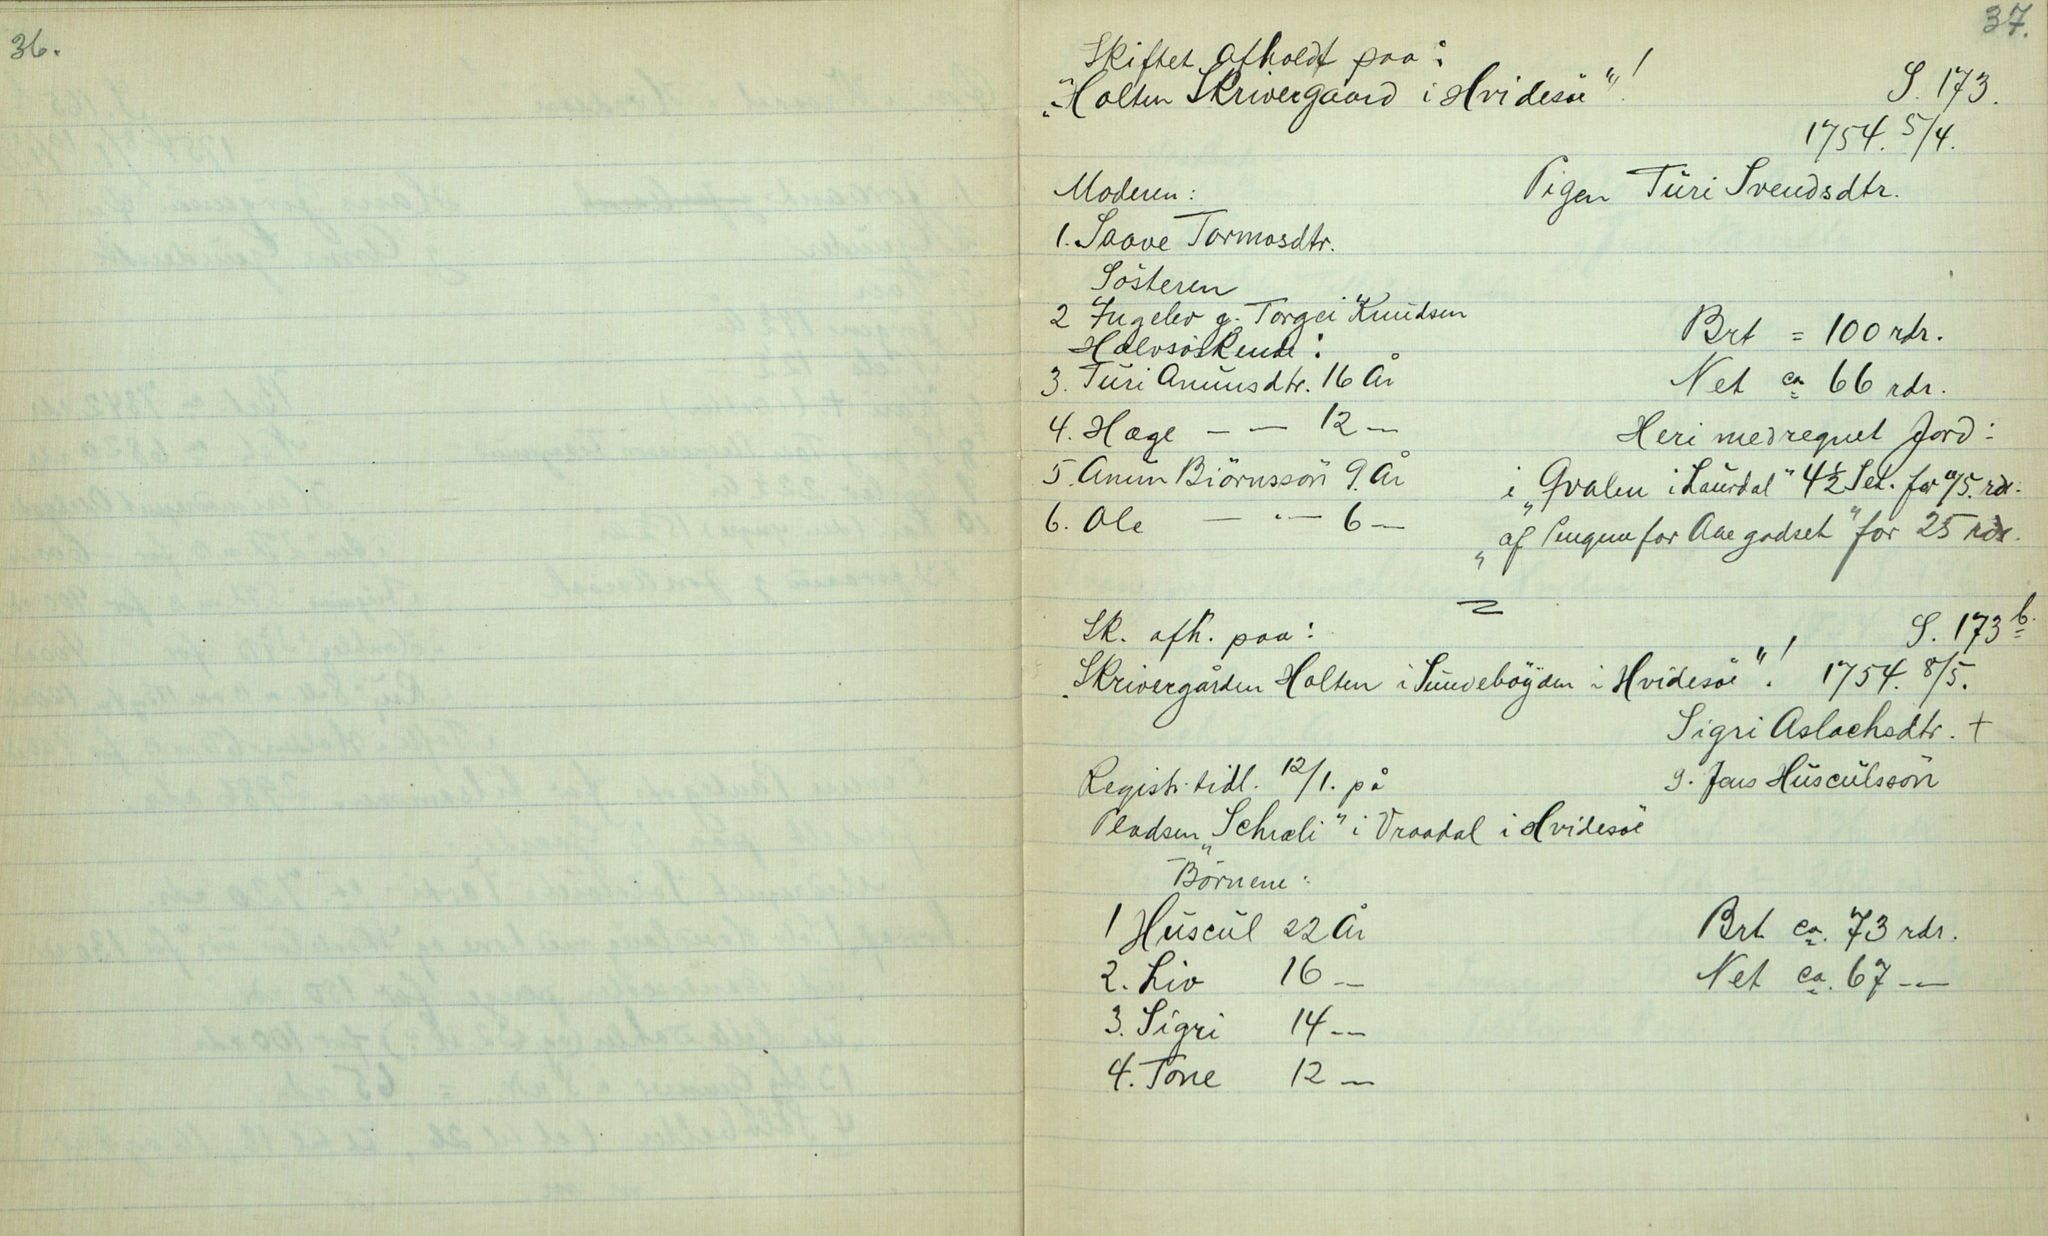 36.
37.
Skiftet afholdt paa:
„Holten Skrivergaard i Hvidesöe"!
S. 173.
1754. 5/4.
Moderen:
Pigen Turi Svendsdtr.
1. Saave Tormosdtr.
Sösteren
2 Ingelev g. Torgei Knudsen
Brt = 100 rdr.
Halvsöskende:
3. Turi Anunsdtr. 16 År
Net ca 66 rdr.
4. Hæge — — 12 —
Heri medregnet Jord:
5. Anun Biörnssön 9. År
i „Qvalen i Laurdal" 4½ Set. for 75. rdr.
6. Ole — — 6 —
„af Pengene for Aaegodset" for 25 rdr.
Sk. afh. paa:
S. 173 b.
„Skrivergården Holten i Sundebögden i Hvidesöe"!
1754. 8/5.
Sigri Aslachsdtr. +
Registr. tidl. 12/1. på
g. Jens Husculssön
Pladsen „Schræli" i Vraadal i Hvidesöe
Börnene:
1 Huscul 22 År
Brt ca. 73 rdr.
2. Liv 16 —
Net ca. 67 —
3. Sigri 14 —
4. Tone 12 —